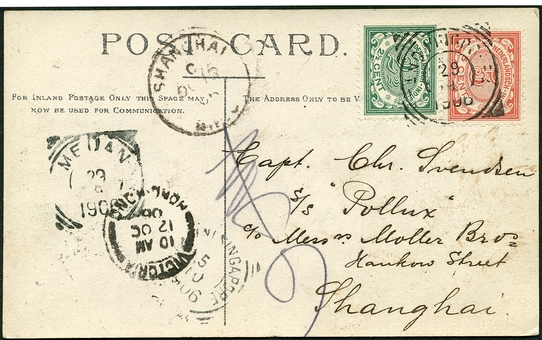 POST CARD.
FOR INLAND POSTAGE ONLY THIS SPACE MAY
NOW BE USED FOR COMMUNICATION.
THE ADDRESS ONLY TO BE
SHANGHAI
29
1906
MEDAN
1906
HONG-KONG
10 AM
12 OC
06
VICTORIA
SINGAPORE
Capt. Chr. Svendsen
S/S "Pollux"
c/o Messrs Moller Bros
Hankow Street
Shanghai.